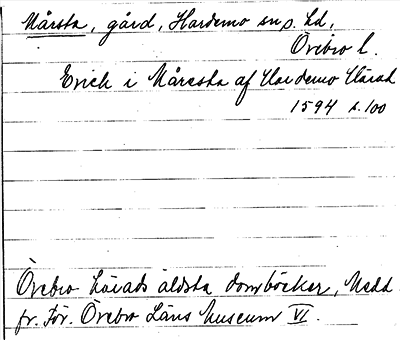 Mårsta, gård, Hardemo sn o. hd,
Örebro l.
Erich i Måresta af Hardemo Härad
1594 s. 100
Örebro härads äldsta domböcker, Medd
fr. För. Örebro Läns Museum VI.